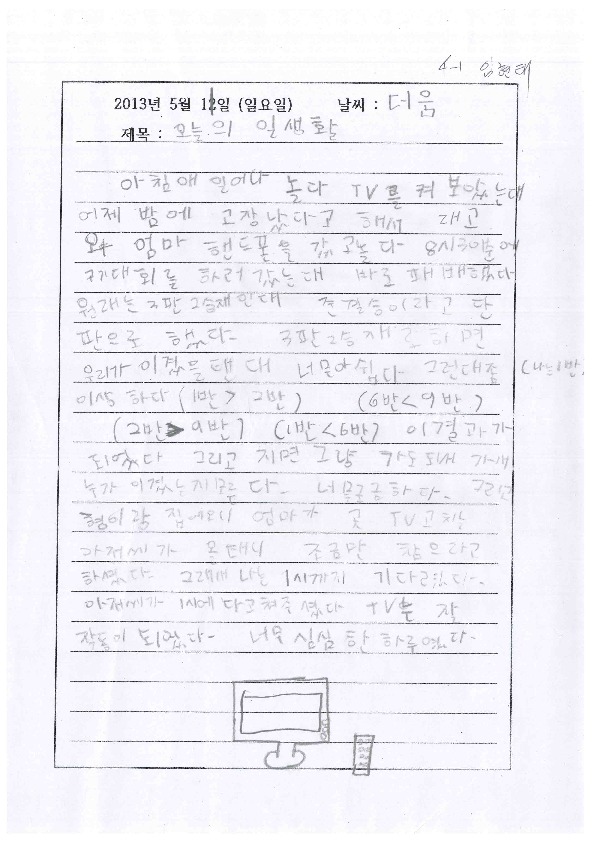 4-1 임현태
2013년 5월 12일 (일요일) 날씨 : 더움
제목 : 오늘의 일생활
아침애 일어나 놀다 TV를 켜 보았는대
어제 밤에 고장났다고 해서
엄마 핸드폰을 갖고놀다 8시30분에
대회를 하러 갔는대 바로 패배했다
원래는 3판 2승재인대 견결승이라고 단
판으로 했다. 3판2승재로하면
우리가 이겼을탠대 너무아쉽다 그런대좀 (나는1반)
이색 하다 (1반 > 2반) (6반<9반)
(2반>9반) (1반<6반) 이결과가
되었다 그리고 지면 그냥 가도되서 가새
누가 이겼는지모른다. 너무궁금하다. 그리고
형이랑 집에오니 엄마가 곳 TV고치는
아저씨가 올태니 조금만 참으라고
하셨다. 그래서 나는 1시까지 기다렸다.
아저씨가 1시에 다고쳐주셨다 TV는 잘
작동이 되었다. 너무 심심한 하루였다.